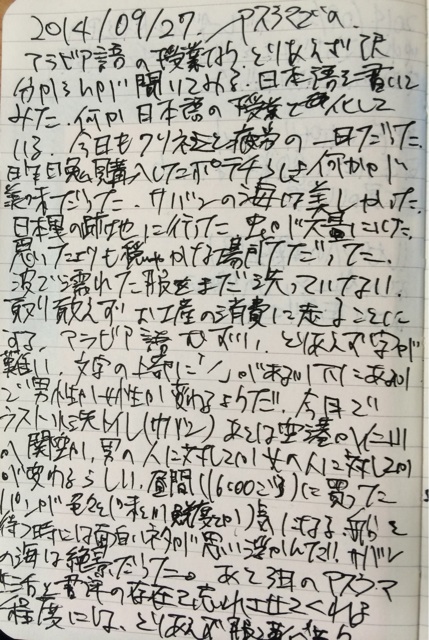 2014/09/27. アスラマでの
アラビア語の授業なう、とりあえず訳
分からんが聞いてみる. 日本語を書いて
みた. 何か日本語の授業と化して
いる. 今日も 疲労の一日だった.
昨日 購入したポテチらしき何かが
美味だった. サバンの海は美しかった.
日本軍の跡地に行った. 虫が大量にいた.
思いたよりも穏やかな場所だった.
波で濡れた服をまだ洗っていない.
取り敢えずお土産の消費に走ることに
する. アラビア語むずい, とりあえず字が
難い. 文字の上部に「ノ」があるか下にあるか
で男性か女性が変わるようだ. 今日で
ラスト水洗トイレ(サバン) あとは空港
か 関空か. 男の人に対してか女の人に対してか
が変わるらしい. 昼間(16:00ごろ)に買った
パンが 気になる. 船を
待つ時には面白いネタが思い浮かんだ. サバン
の海は絶景だった. あと3日のアスラマ
生活と の存在を忘れさせてくれる
程度には、とりあえず